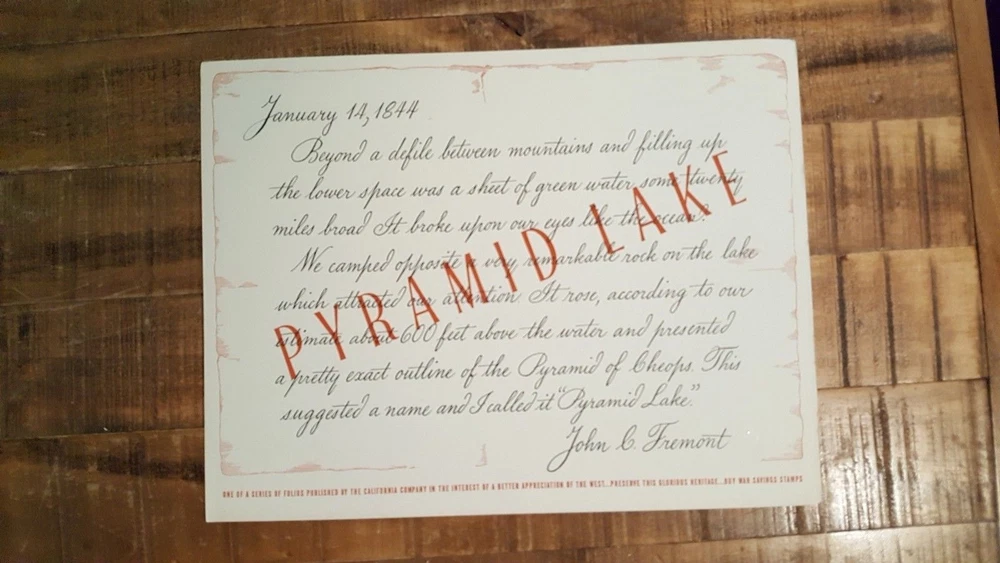 January 14, 1844
Beyond a defile between mountains and filling up
the lower space was a sheet of green water some twenty
miles broad It broke upon our eyes like the ocean."
We camped opposite a very remarkable rock on the lake
which attracted our attention. It rose, according to our
estimate about 600 feet above the water and presented
a pretty exact outline of the Pyramid of Cheops. This
suggested a name and I called it "Pyramid Lake."
John C. Fremont
PYRAMID LAKE
ONE OF A SERIES OF FOLIOS PUBLISHED BY THE CALIFORNIA COMPANY IN THE INTEREST OF A BETTER APPRECIATION OF THE WEST...PRESERVE THIS GLORIOUS HERITAGE...BUY WAR SAVINGS STAMPS